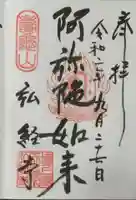 奉拝
令和六年九月二十七日
阿弥陀如来
弘経寺
壽亀山